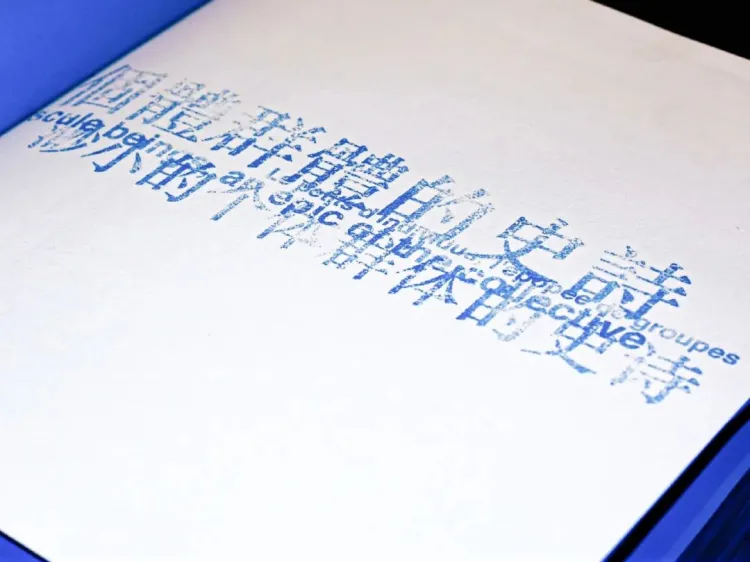 個體群體的史詩
individus, l'épopée de groupes
scule being, an epic of the collective
渺小的个体群体的史诗